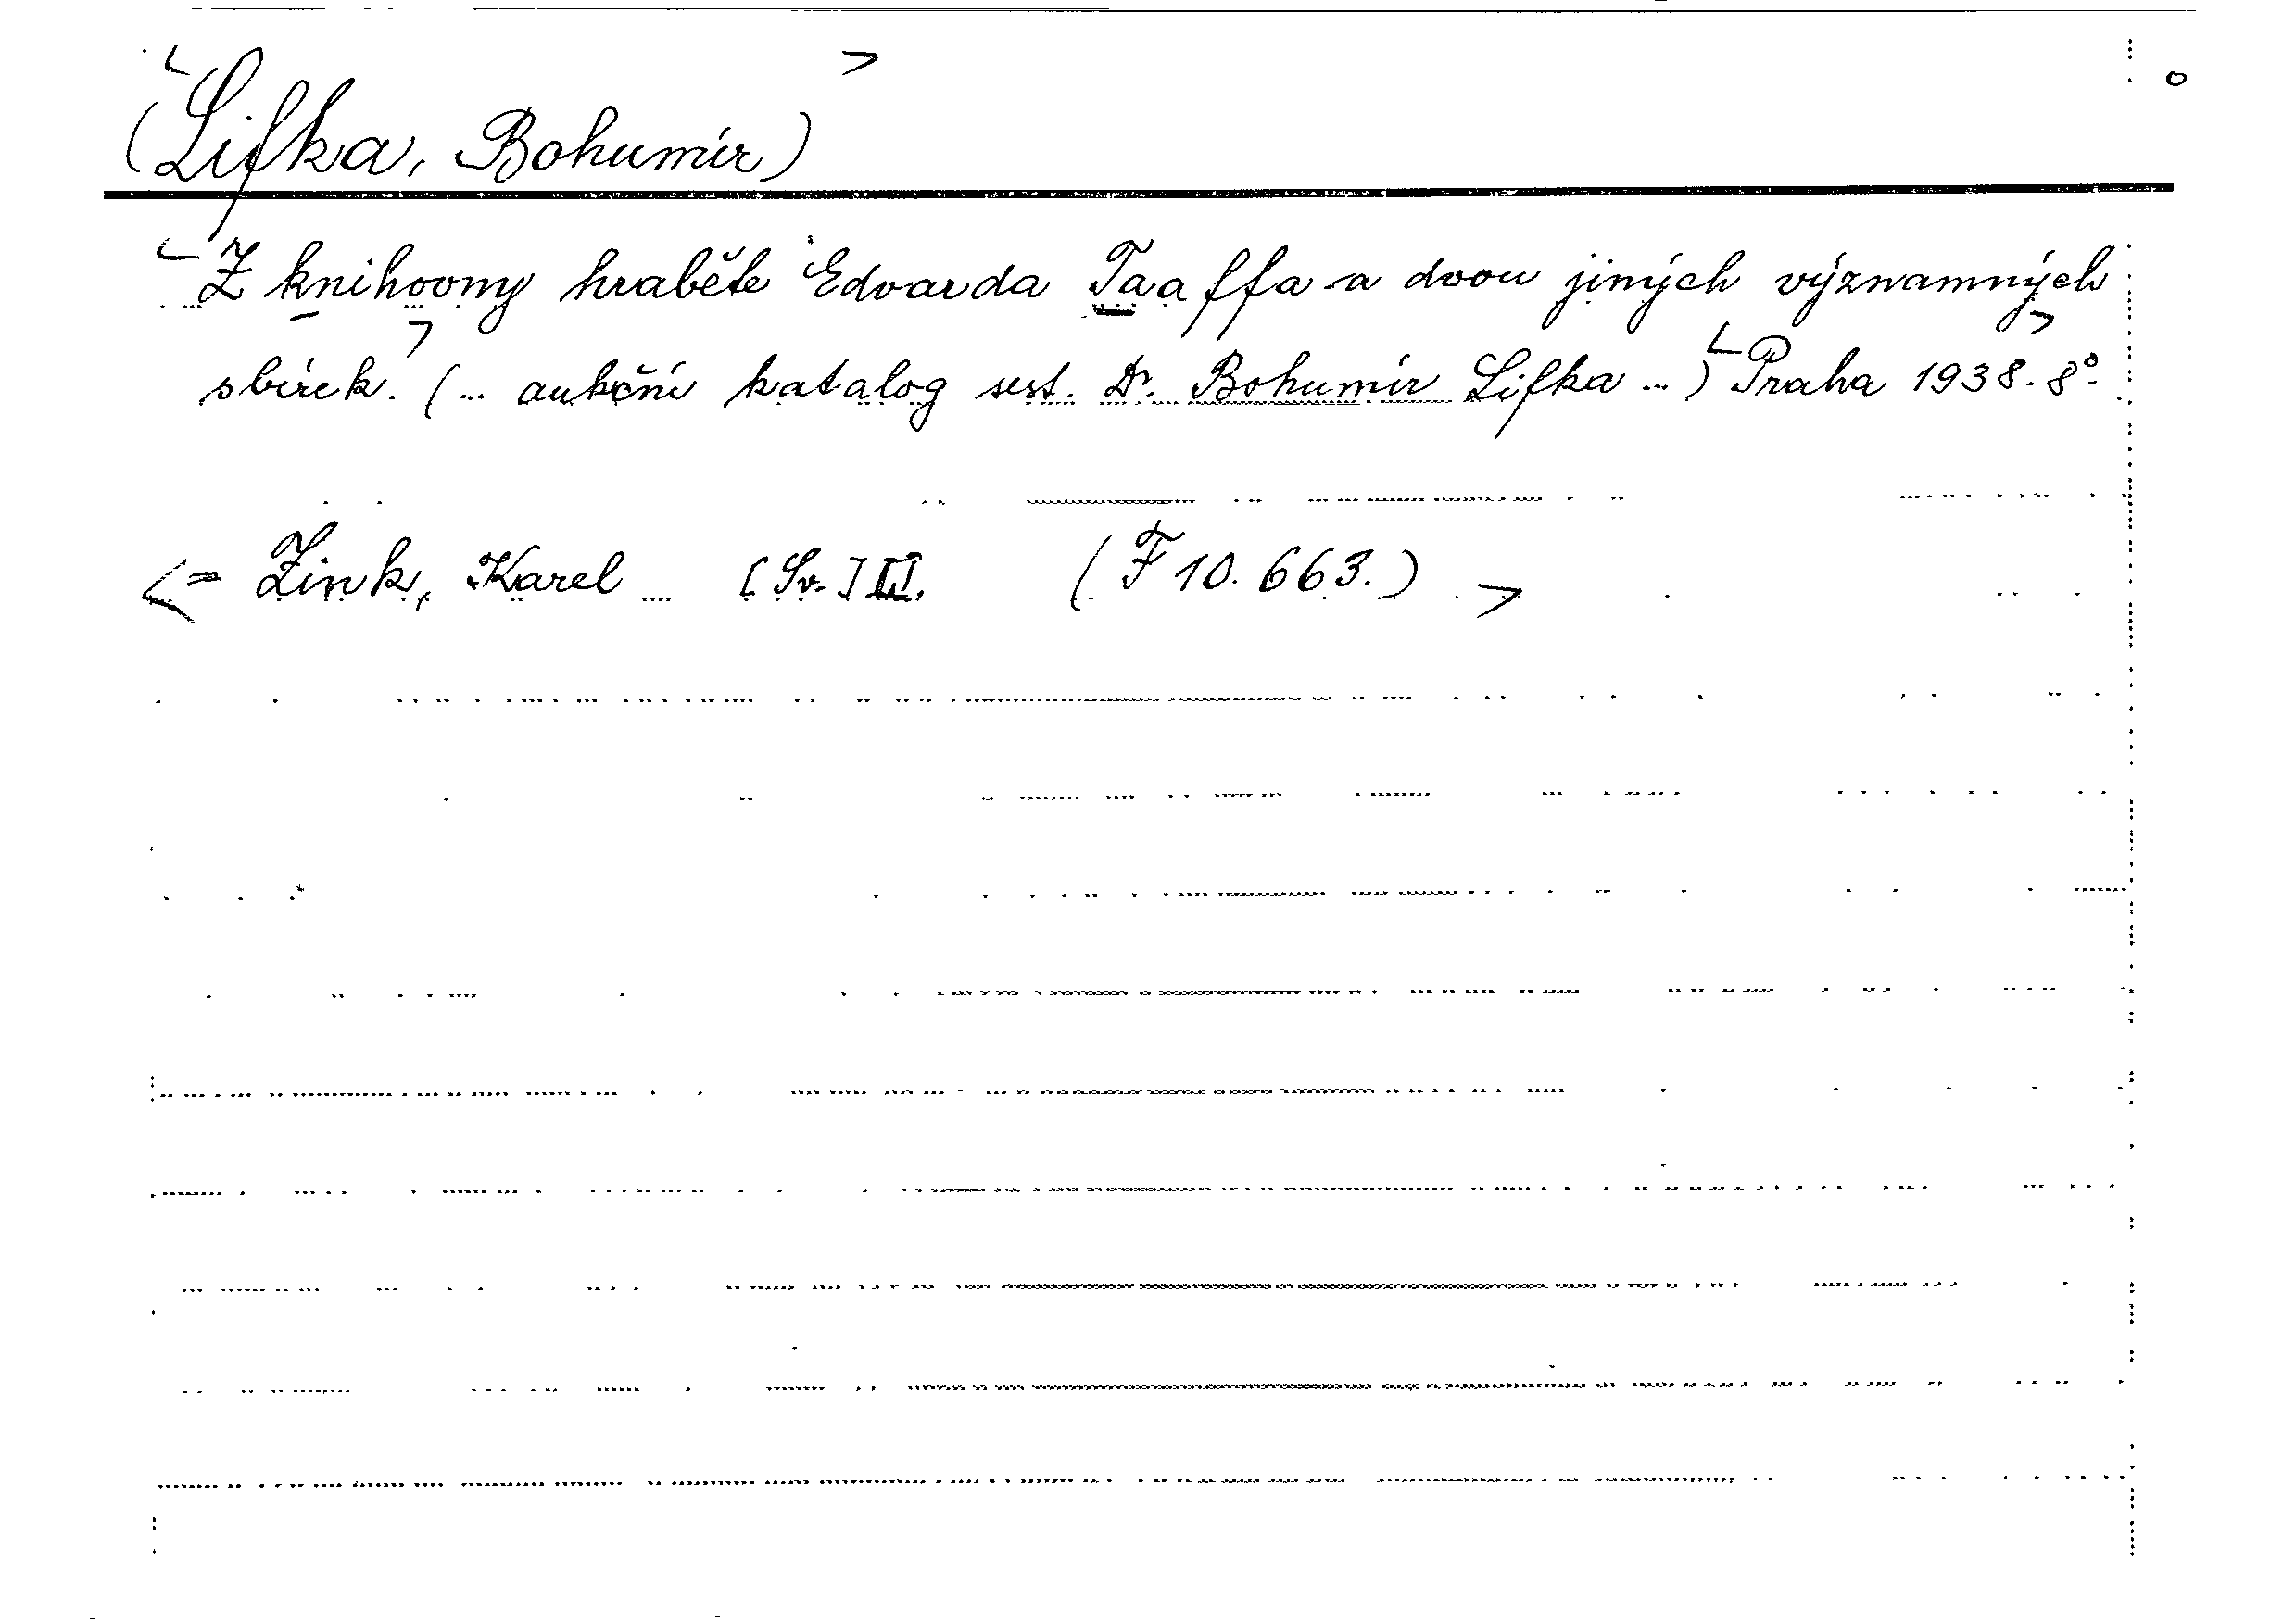 (Lifka, Bohumír)
Z knihovny hraběte Edvarda Taaffa a dvou jiných významných
sbírek. (... aukční katalog sest. Dr. Bohumír Lifka ...) Praha 1938. 8°.
= Zink, Karel ... [Sv.] II. (F 10.663.)